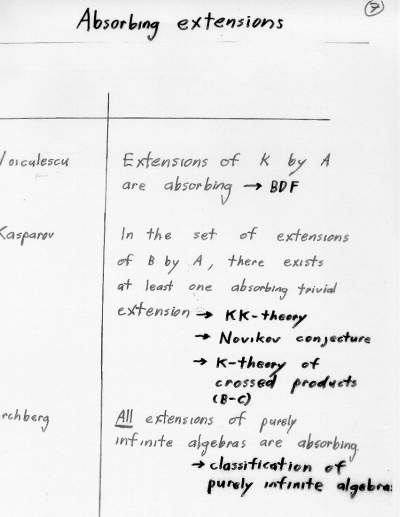 7
Absorbing extensions
Voiculescu
Extensions of K by A
are absorbing → BDF
Kasparov
In the set of extensions
of B by A, there exists
at least one absorbing trivial
extension → KK-theory
→ Novikov conjecture
→ K-theory of
crossed products
(B-C)
rchberg
All extensions of purely
infinite algebras are absorbing
→ classification of
purely infinite algebras